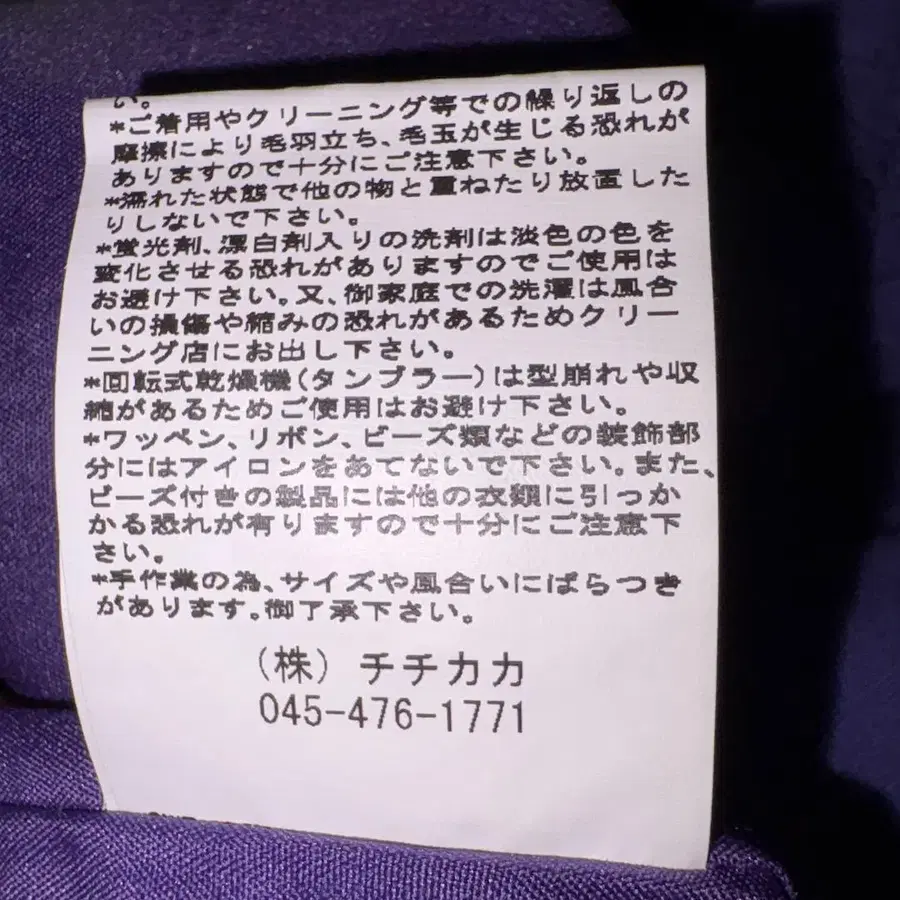 い。
*ご着用やクリーニング等での繰り返しの
摩擦により毛羽立ち、毛玉が生じる恐れが
ありますので十分にご注意下さい。
*濡れた状態で他の物と重ねたり放置した
りしないで下さい。
*蛍光剤、漂白剤入りの洗剤は淡色の色を
変化させる恐れがありますのでご使用は
お避け下さい。又、御家庭での洗濯は風合
いの損傷や縮みの恐れがあるためクリー
ニング店にお出し下さい。
*回転式乾燥機(タンブラー)は型崩れや収
縮があるためご使用はお避け下さい。
*ワッペン、リボン、ビーズ類などの装飾部
分にはアイロンをあてないで下さい。また、
ビーズ付きの製品には他の衣類に引っか
かる恐れが有りますので十分にご注意下
さい。
*手作業の為、サイズや風合いにばらつき
があります。御了承下さい。
(株) チチカカ
045-476-1771